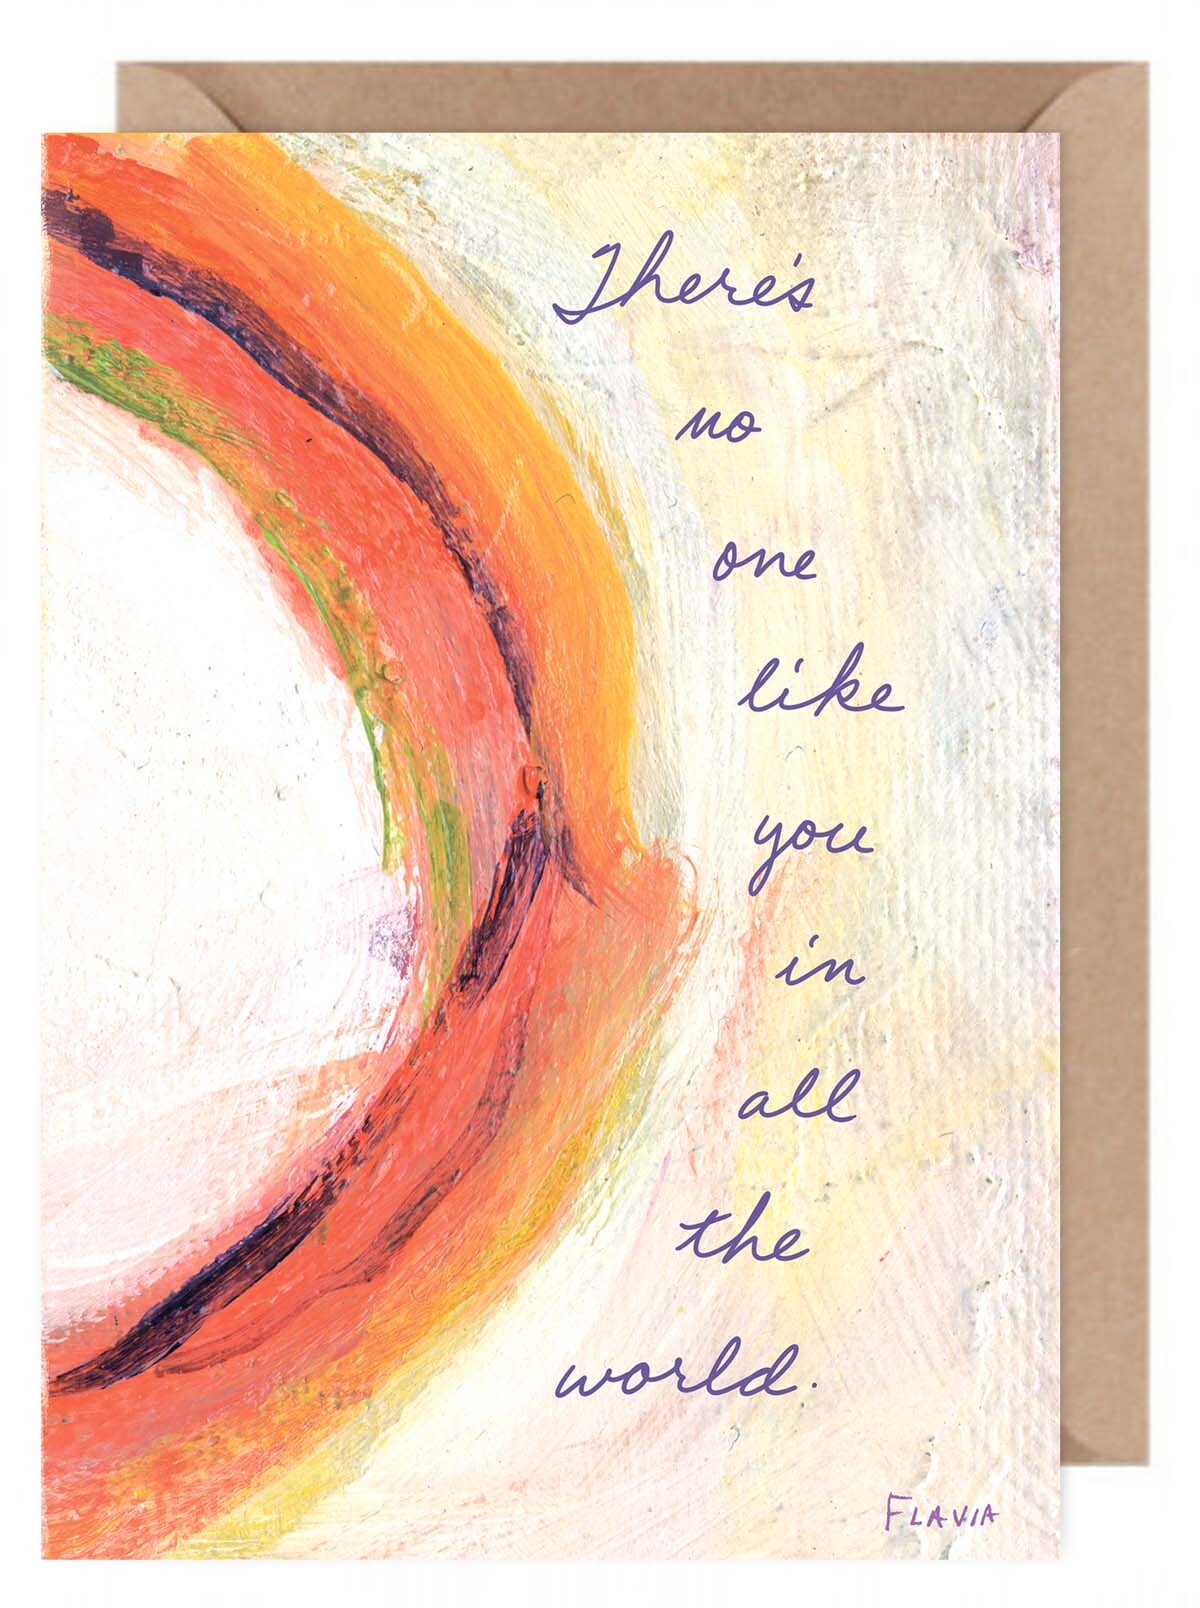 There's
no
one
like
you
in
all
the
world.
FLAVIA